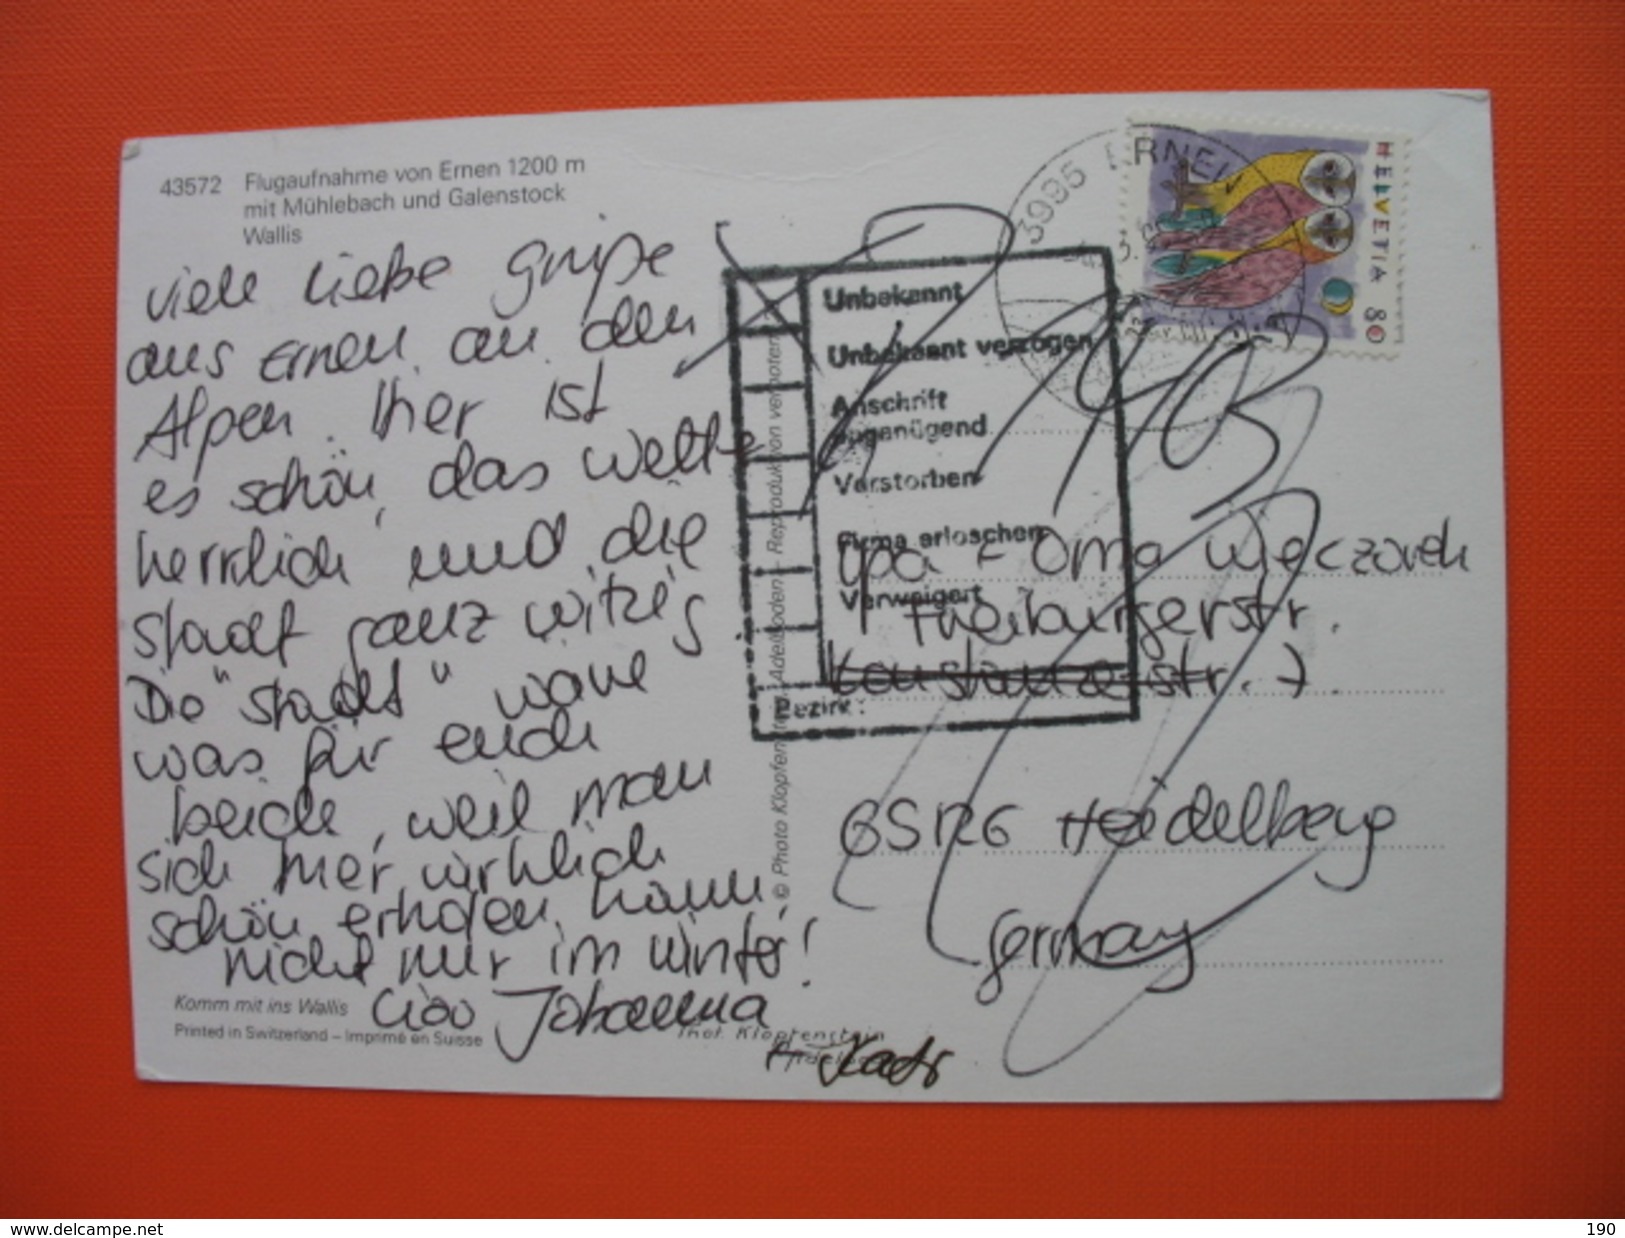 43572 Flugaufnahme von Ernen 1200 m
mit Mühlebach und Galenstock
Wallis
viele liebe grüße
aus Ernen an den
Alpen. Hier ist
es schön, das wetter
herrlich und die
stadt ganz witzig
Die "stadt" wäre
was für euch
beide, weil man
sich hier wirklich
schön erholen kann,
nicht nur im winter!
Ciao Johanna
+ Kads
Komm mit ins Wallis
Printed in Switzerland – Imprimé en Suisse
Phot. Klopfenstein
Adelboden
© Photo Klopfenstein, Adelboden – Reproduktion verboten
3995 ERNEN
HELVETIA 80
Unbekannt
Unbekannt verzogen
Anschrift
ungenügend
Verstorben
Firma erloschen
Verweigert
Bezirk:
Opa + Oma Wieczorek
Freiburgerstr.
Konstanzerstr. 7
Heidelberg
Germany
www.delcampe.net
190